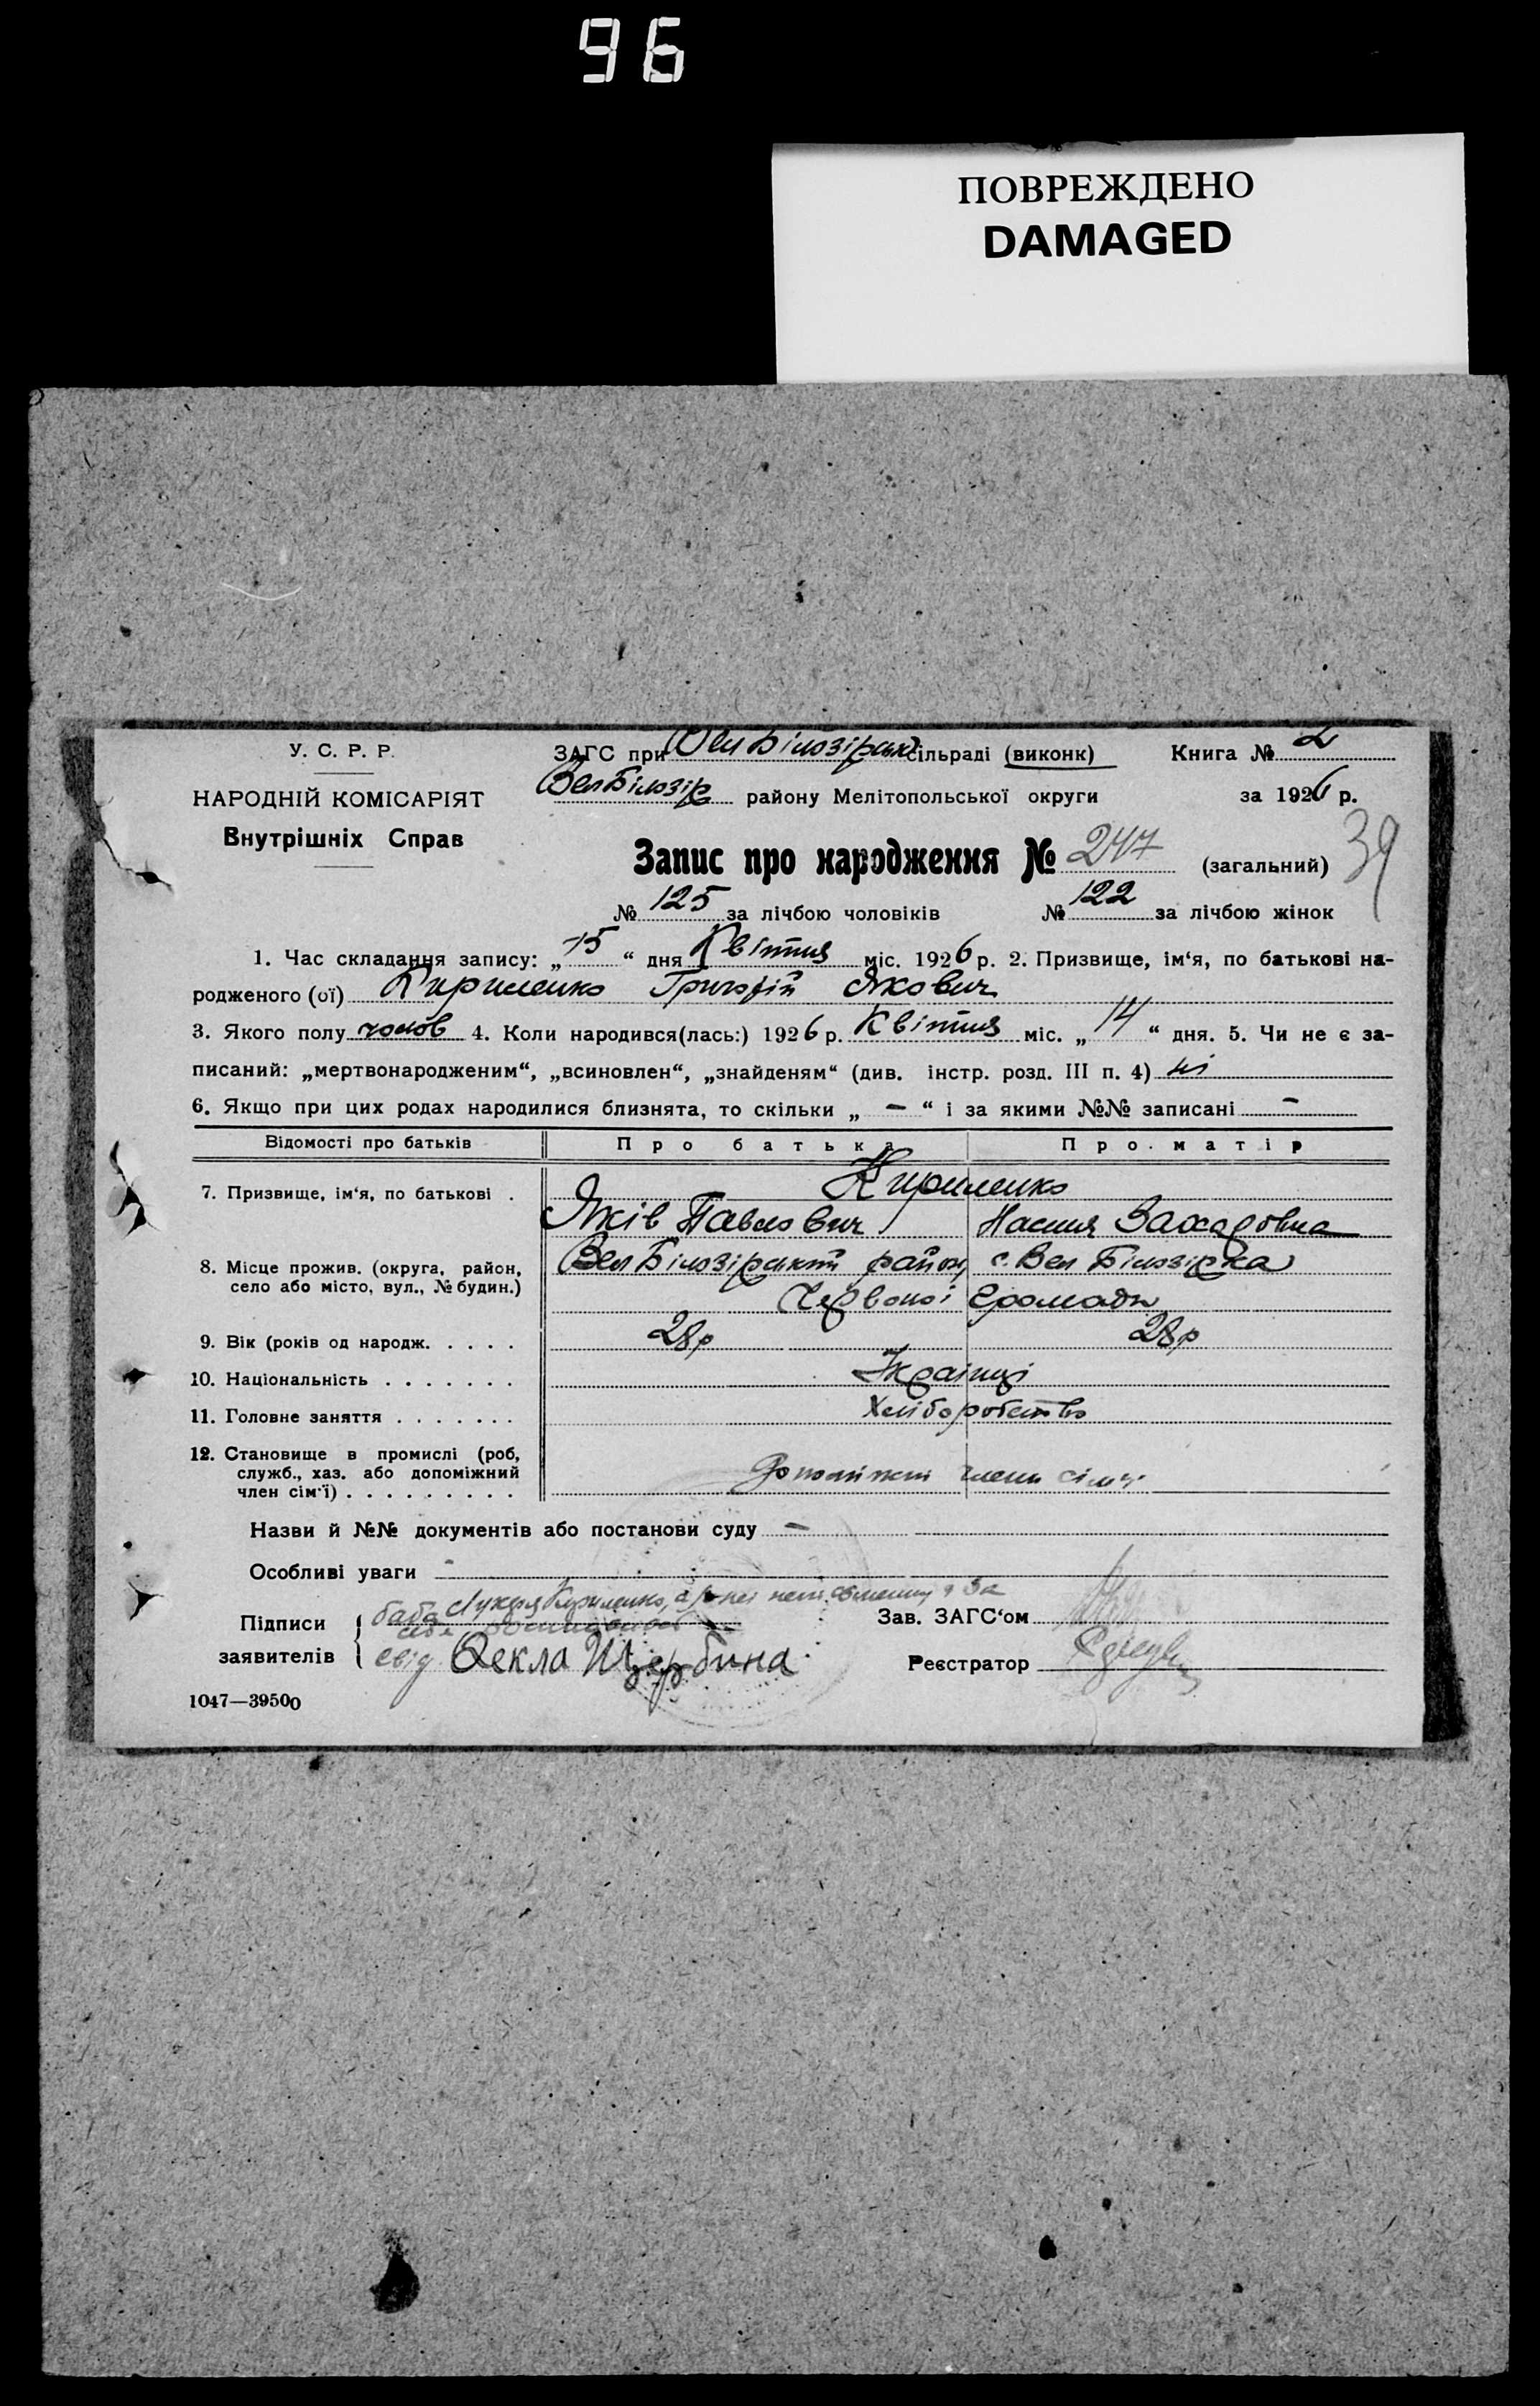 96
ПОВРЕЖДЕНО
DAMAGED
У. С. Р. Р.
ЗАГС при Вел Білозірськ сільраді (виконк) Книга № 2
НАРОДНІЙ КОМІСАРІЯТ
Вел Білозір району Мелітопольської округи за 1926 р.
Внутрішніх Справ
Запис про народження № 247 (загальний) 39
№ 125 за лічбою чоловіків № 122 за лічбою жінок
1. Час складання запису: „15“ дня Квітня міс. 1926 р. 2. Призвище, ім‘я, по батькові на-
родженого (ої) Кириленко Григорій Якович
3. Якого полу чолов 4. Коли народився(лась:) 1926 р. Квітня міс. „14“ дня. 5. Чи не є за-
писаний: „мертвонародженим“, „всиновлен“, „знайденям“ (див. інстр. розд. III п. 4) ні
6. Якщо при цих родах народилися близнята, то скільки „ — “ і за якими №№ записані —
Відомості про батьків Про батька Про матір
7. Призвище, ім‘я, по батькові . Кириленко
Яків Павлович Настя Захаровна
8. Місце прожив. (округа, район, Вел Білозірський район, с. Вел Білозірка
село або місто, вул., № будин.)
Червоної Громади
9. Вік (років од народж. . . . . 28р 28р
10. Національність . . . . . . . Українці
11. Головне заняття . . . . . . . Хліборобство
12. Становище в промислі (роб,
служб., хаз. або допоміжний Допоміжні члени сім'ї
член сім‘ї) . . . . . . . . .
Назви й №№ документів або постанови суду —
Особливі уваги -
баба Лукеря Кириленко, а за неї
Підписи Зав. ЗАГС‘ом
заявителів свід Фекла Щербина Реєстратор
1047—39500